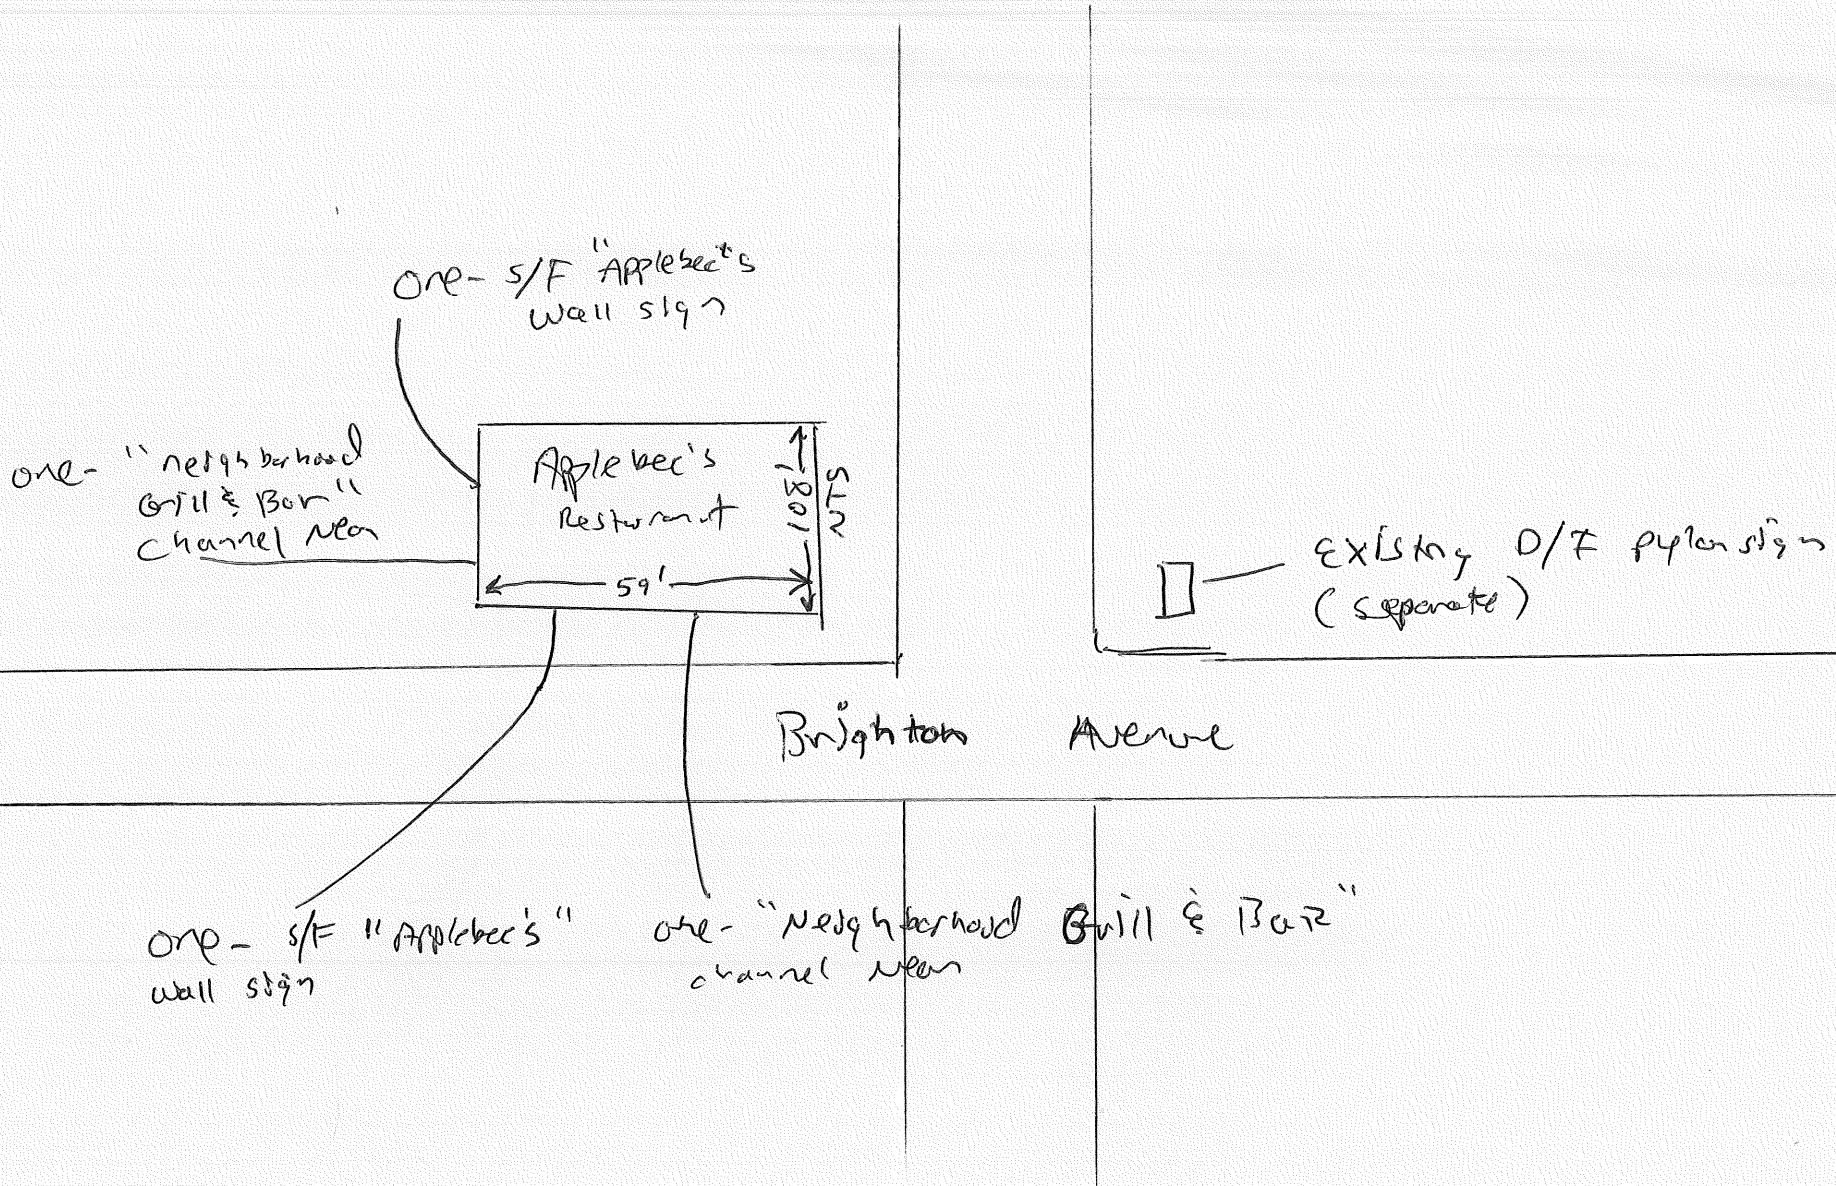 one- S/F "Applebee's
wall sign
one- "neighborhood
Grill & Bar"
Channel Neon
Applebee's
Restaurant
108'
NTS
59'
Existing D/F pylon sign
(separate)
Brighton Avenue
one- S/F "Applebee's"
wall sign
one- "Neighborhood Grill & Bar"
channel Neon